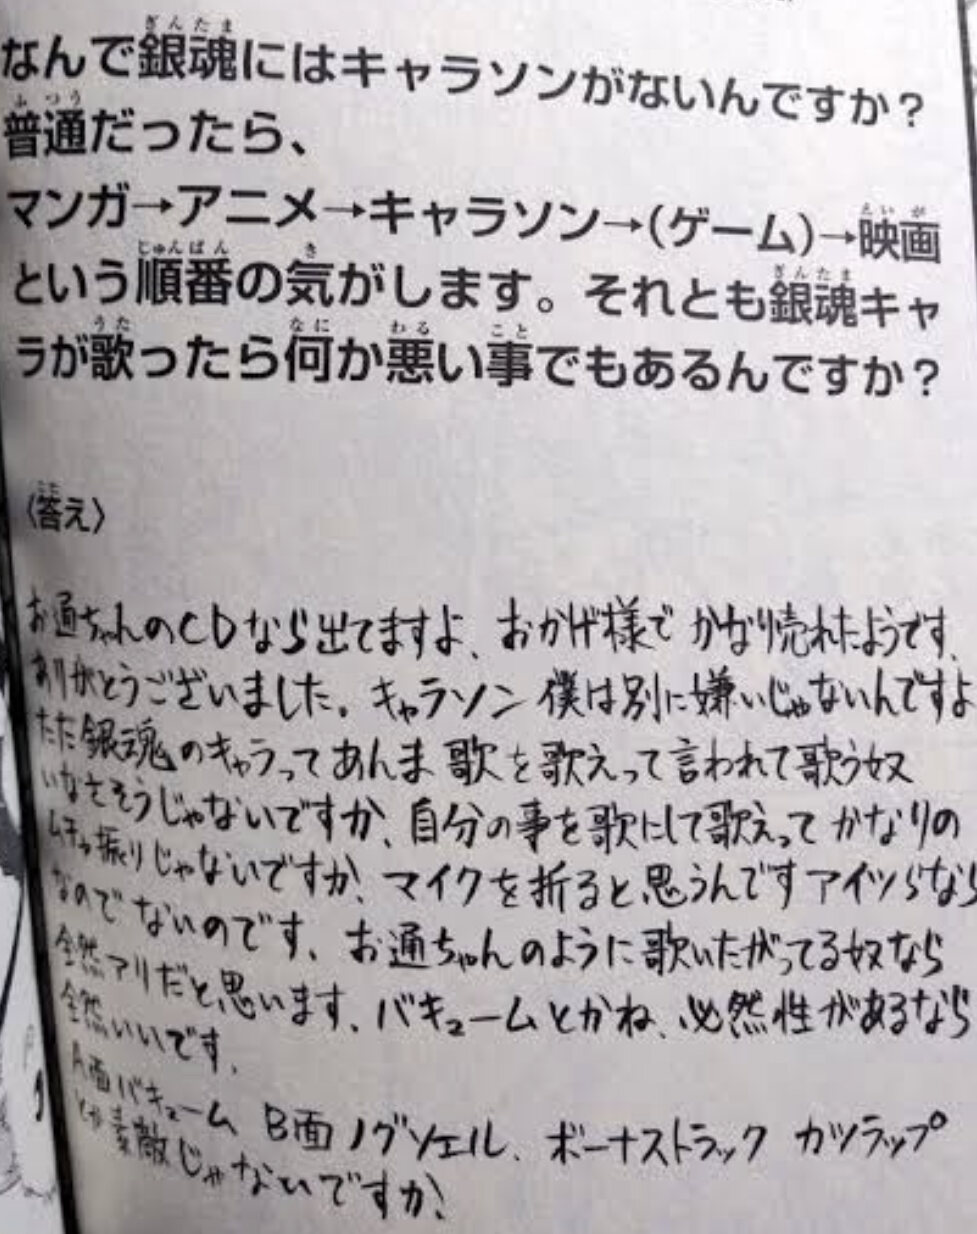 なんで銀魂にはキャラソンがないんですか？
普通だったら、
マンガ→アニメ→キャラソン→(ゲーム)→映画
という順番の気がします。それとも銀魂キャ
ラが歌ったら何か悪い事でもあるんですか？
〈答え〉
お通ちゃんのCDなら出てますよ、おかげ様でかなり売れたようです、
ありがとうございました。キャラソン僕は別に嫌いじゃないんですよ
ただ銀魂のキャラってあんま歌を歌えって言われて歌う奴
いなさそうじゃないですか、自分の事を歌にして歌えってかなりの
ムチャ振りじゃないですか、マイクを折ると思うんですアイツらなら
なのでないのです、お通ちゃんのように歌いたがってる奴なら
全然アリだと思います、バキュームとかね、必然性があるなら
全然いいです、
A面バキューム B面ノグソエル、ボーナストラック カツラップ
とか素敵じゃないですか、